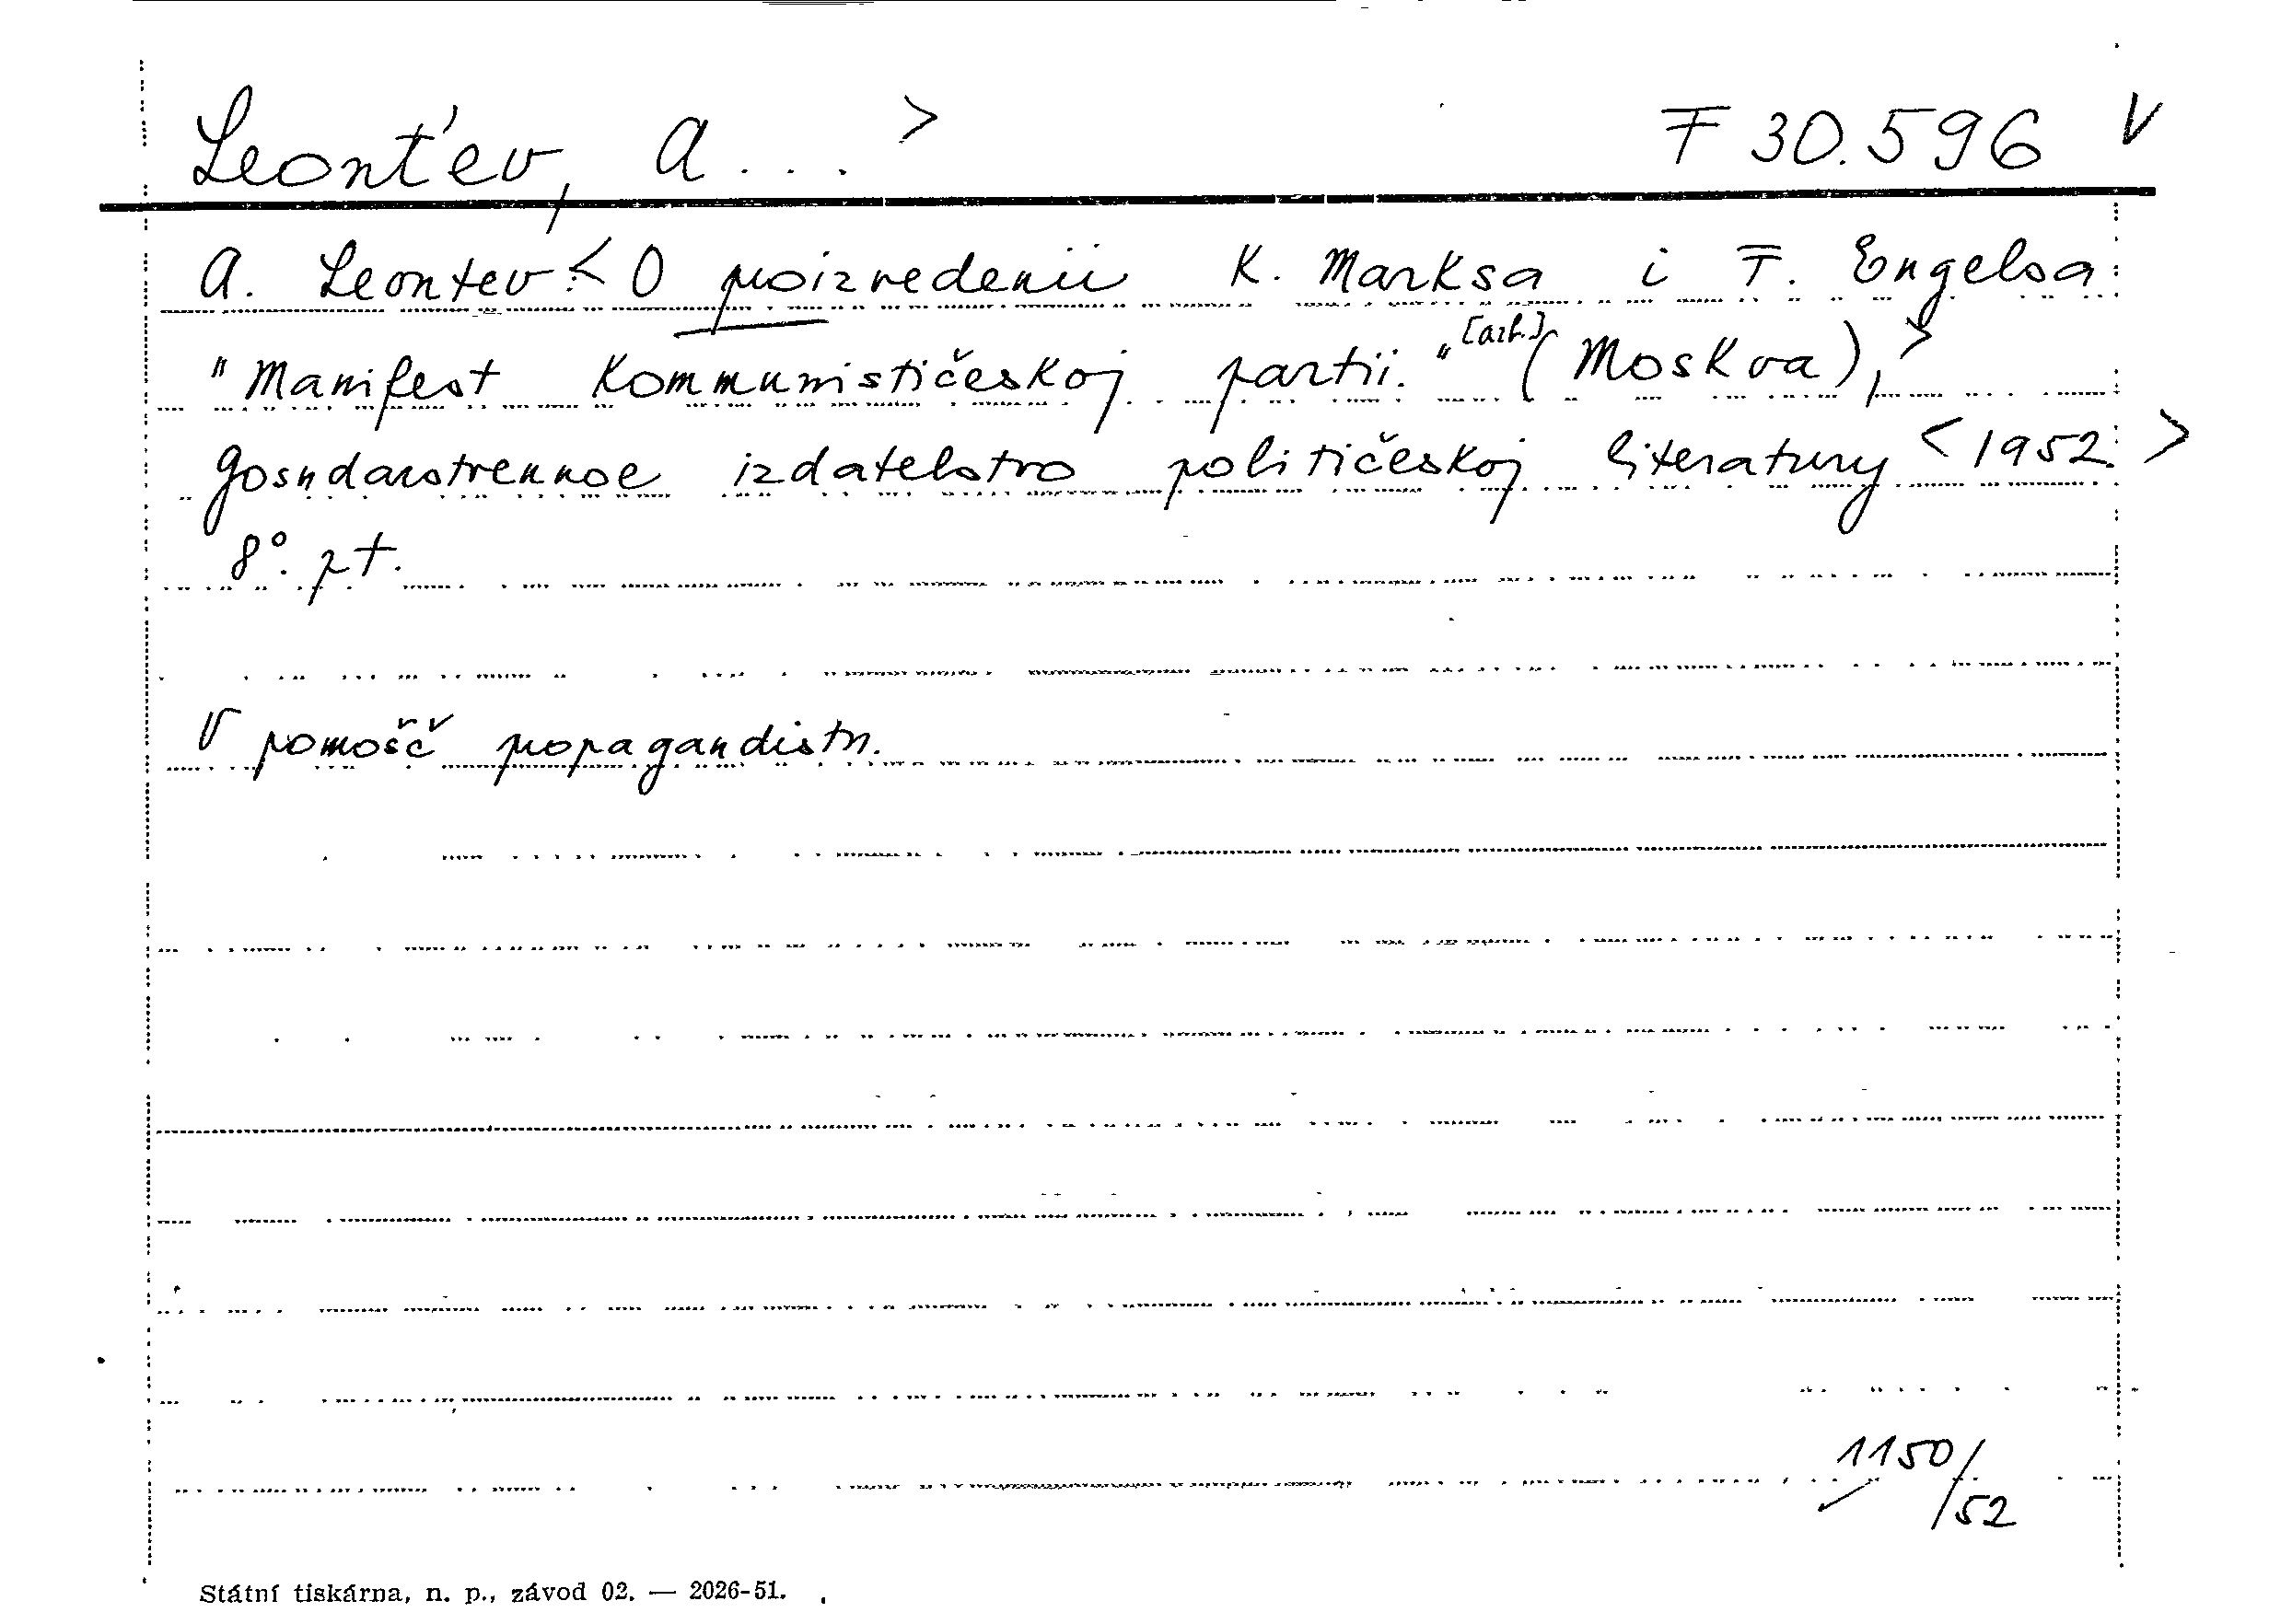 Leonťev, A... > F 30.596 V
A. Leontev: < O proizvedenii K. Marksa i F. Engelsa
"Manifest Kommunističeskoj partii." [azb.] (Moskva), >
Gosudarstvennoe izdatelstvo političeskoj literatury < 1952. >
8°. pt.
V pomošč propagandistu.
1150/
/52
Státní tiskárna, n. p., závod 02. — 2026-51.